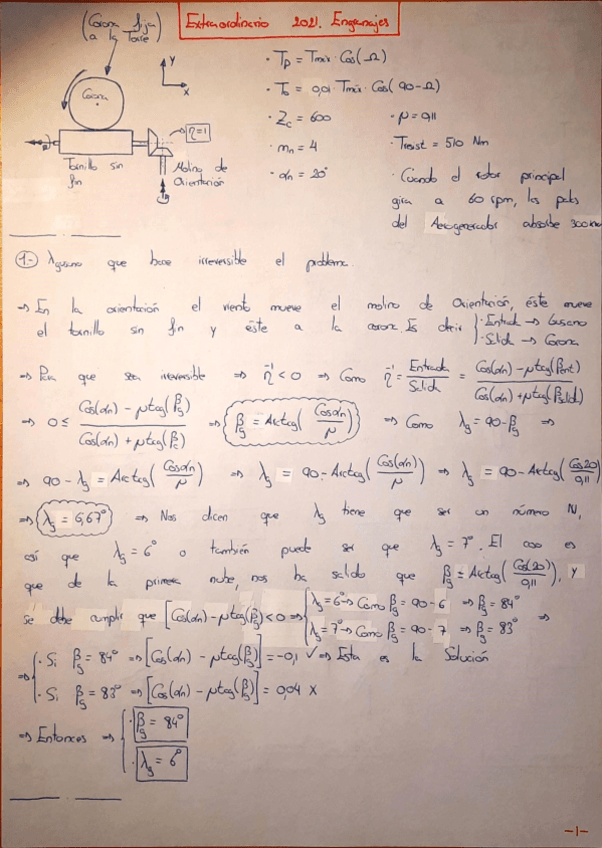 Extraordinario 2021. Engranajes
(Corona fija
a la Torre)
Corona
Y
X
η=1
Tornillo sin
fin
Molino de
Orientación
· Tp = Tmáx · Cos(Ω)
· To = 0,01 · Tmáx · Cos(90-Ω)
· Zc = 600
· mn = 4
· αn = 20°
· μ = 0,11
· Tresist = 510 Nm
· Cuando el rotor principal
gira a 60 rpm, las palas
del Aerogenerador absorbe 300
1.- λgusano que hace irreversible el problema.
⇒ En la orientación el viento mueve el molino de Orientación, éste mueve
el tornillo sin fin y éste a la corona. Es decir { · Entrada → Gusano
· Salida → Corona
⇒ Para que sea irreversible ⇒ η⁻¹ < 0 ⇒ Como η⁻¹ = Entrada/Salida = Cos(αn) - μtag(βent) / Cos(αn) + μtag(βsalid)
⇒ 0 ≤ Cos(αn) - μtag(βg) / Cos(αn) + μtag(βc) ⇒ βg = Arctag(Cosαn/μ) ⇒ Como λg = 90-βg ⇒
⇒ 90 - λg = Arctag(Cosαn/μ) ⇒ λg = 90 - Arctag(Cos(αn)/μ) ⇒ λg = 90 - Arctag(Cos20/0,11)
⇒ λg = 6,67° ⇒ Nos dicen que λg tiene que ser un número N,
así que λg = 6° o también puede ser que λg = 7°. El caso es
que de la primera nube, nos ha salido que βg = Arctag(Cos(20)/0,11), y
se debe cumplir que [Cos(αn) - μtag(βg)] < 0 ⇒ { λg = 6° → Como βg = 90 - 6 ⇒ βg = 84°
λg = 7° → Como βg = 90 - 7 ⇒ βg = 83° ⇒
⇒ { · Si βg = 84° ⇒ [Cos(αn) - μtag(βg)] = -0,1 ✓ ⇒ Esta es la Solución
· Si βg = 83° ⇒ [Cos(αn) - μtag(βg)] = 0,04 X
⇒ Entonces ⇒ { · βg = 84°
· λg = 6°
-1-